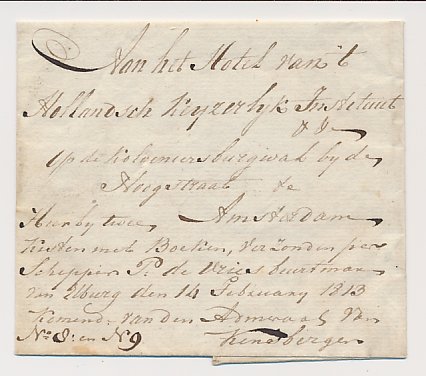 Aan het Hotel van 't
Hollandsch Keyzerlyk Instetuut
& &c
op de kloveniersburgwal by de
Hoogstraat te
Amsterdam
Hier by twee
Kisten met Boeken, verzonden per
Schipper P. de Vries beurtman
van Elburg den 14 February 1813
Komend: van den Admiraal van
No 8: en No 9 Kinsbergen